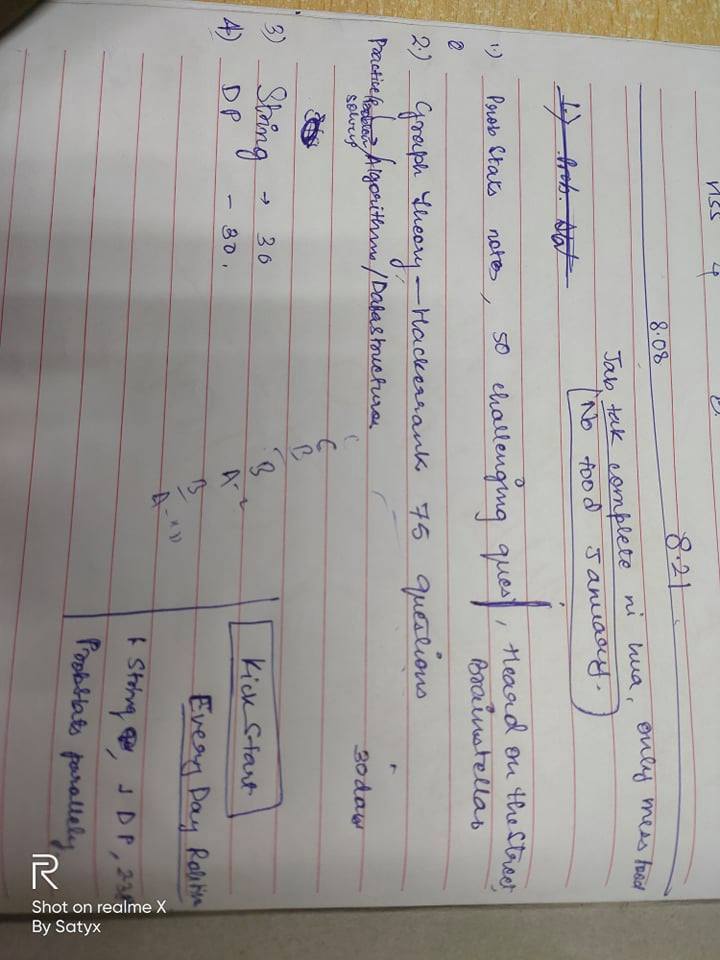 NSS 4
8.08 8.21
Jab tak complete ni hua, only mess food
No food January.
1.) Prob. Stat
1.) Prob Stats notes, 50 challenging ques, Heard on the Street,
Brainstellar
2.) Graph Theory — Hackerrank 75 questions
Practice/Problem solving/Algorithms/Datastructures
30 days
3) String → 30
4) DP - 30.
C
B
B
A-2
B
A-
Kick Start
Every Day Routine
1 String, 1 DP,
Probstats parallely
Shot on realme X
By Satyx